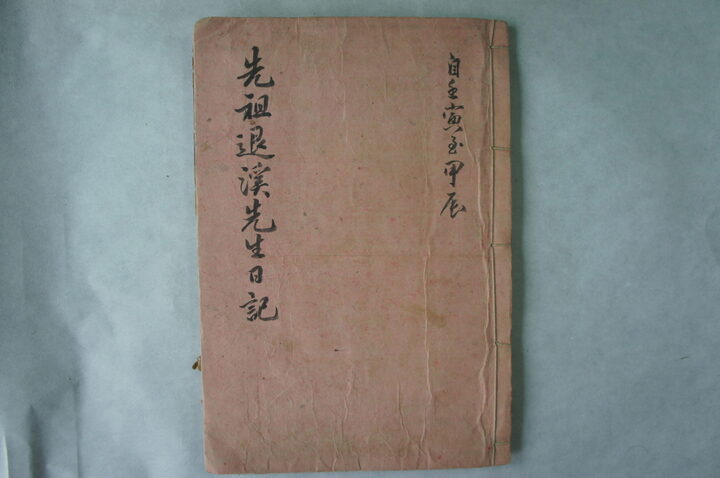 自壬寅至甲辰
先祖退溪先生日記